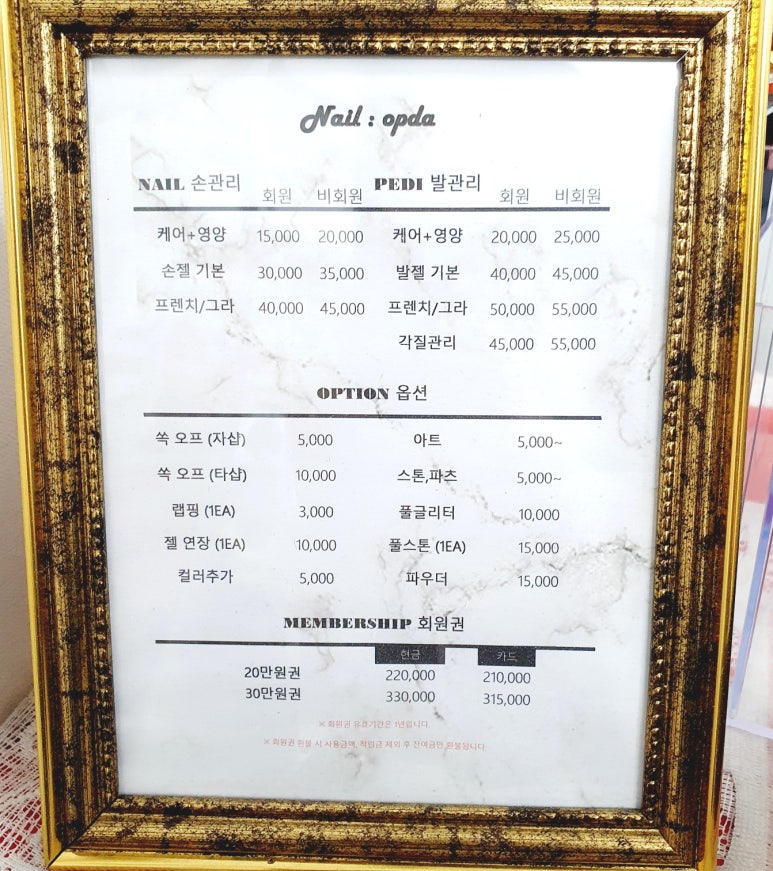 Nail : opda
NAIL 손관리 회원 비회원 PEDI 발관리 회원 비회원
케어+영양 15,000 20,000 케어+영양 20,000 25,000
손젤 기본 30,000 35,000 발젤 기본 40,000 45,000
프렌치/그라 40,000 45,000 프렌치/그라 50,000 55,000
각질관리 45,000 55,000
OPTION 옵션
쏙 오프 (자샵) 5,000 아트 5,000~
쏙 오프 (타샵) 10,000 스톤,파츠 5,000~
랩핑 (1EA) 3,000 풀글리터 10,000
젤 연장 (1EA) 10,000 풀스톤 (1EA) 15,000
컬러추가 5,000 파우더 15,000
MEMBERSHIP 회원권
현금 카드
20만원권 220,000 210,000
30만원권 330,000 315,000
※ 회원권 유효기간은 1년입니다.
※ 회원권 환불 시 사용금액, 적립금 제외 후 잔여금만 환불됩니다